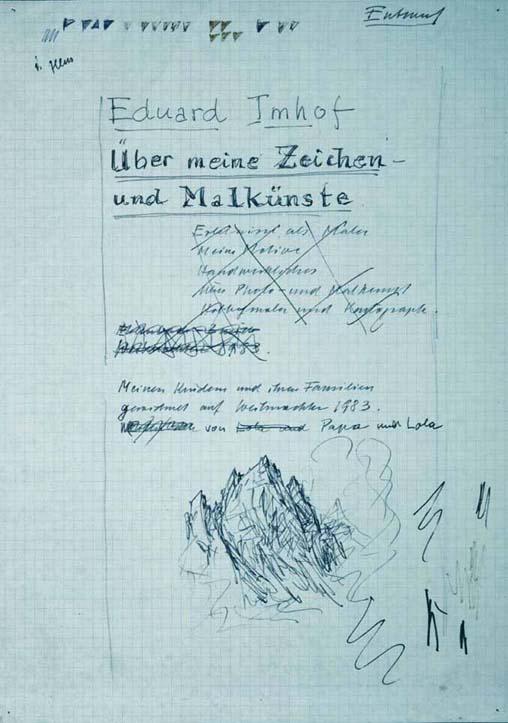 Entwurf
Eduard Imhof
Über meine Zeichen-
und Malkünste
Erlebnisse als Maler
Meine Motive
Handwerkliches
Über Photo- und Malkunst
Hobbymaler und Kartograph.
1983.
Meinen Kindern und ihren Familien
gewidmet auf Weihnachten 1983.
von Lola und Papa und Lola